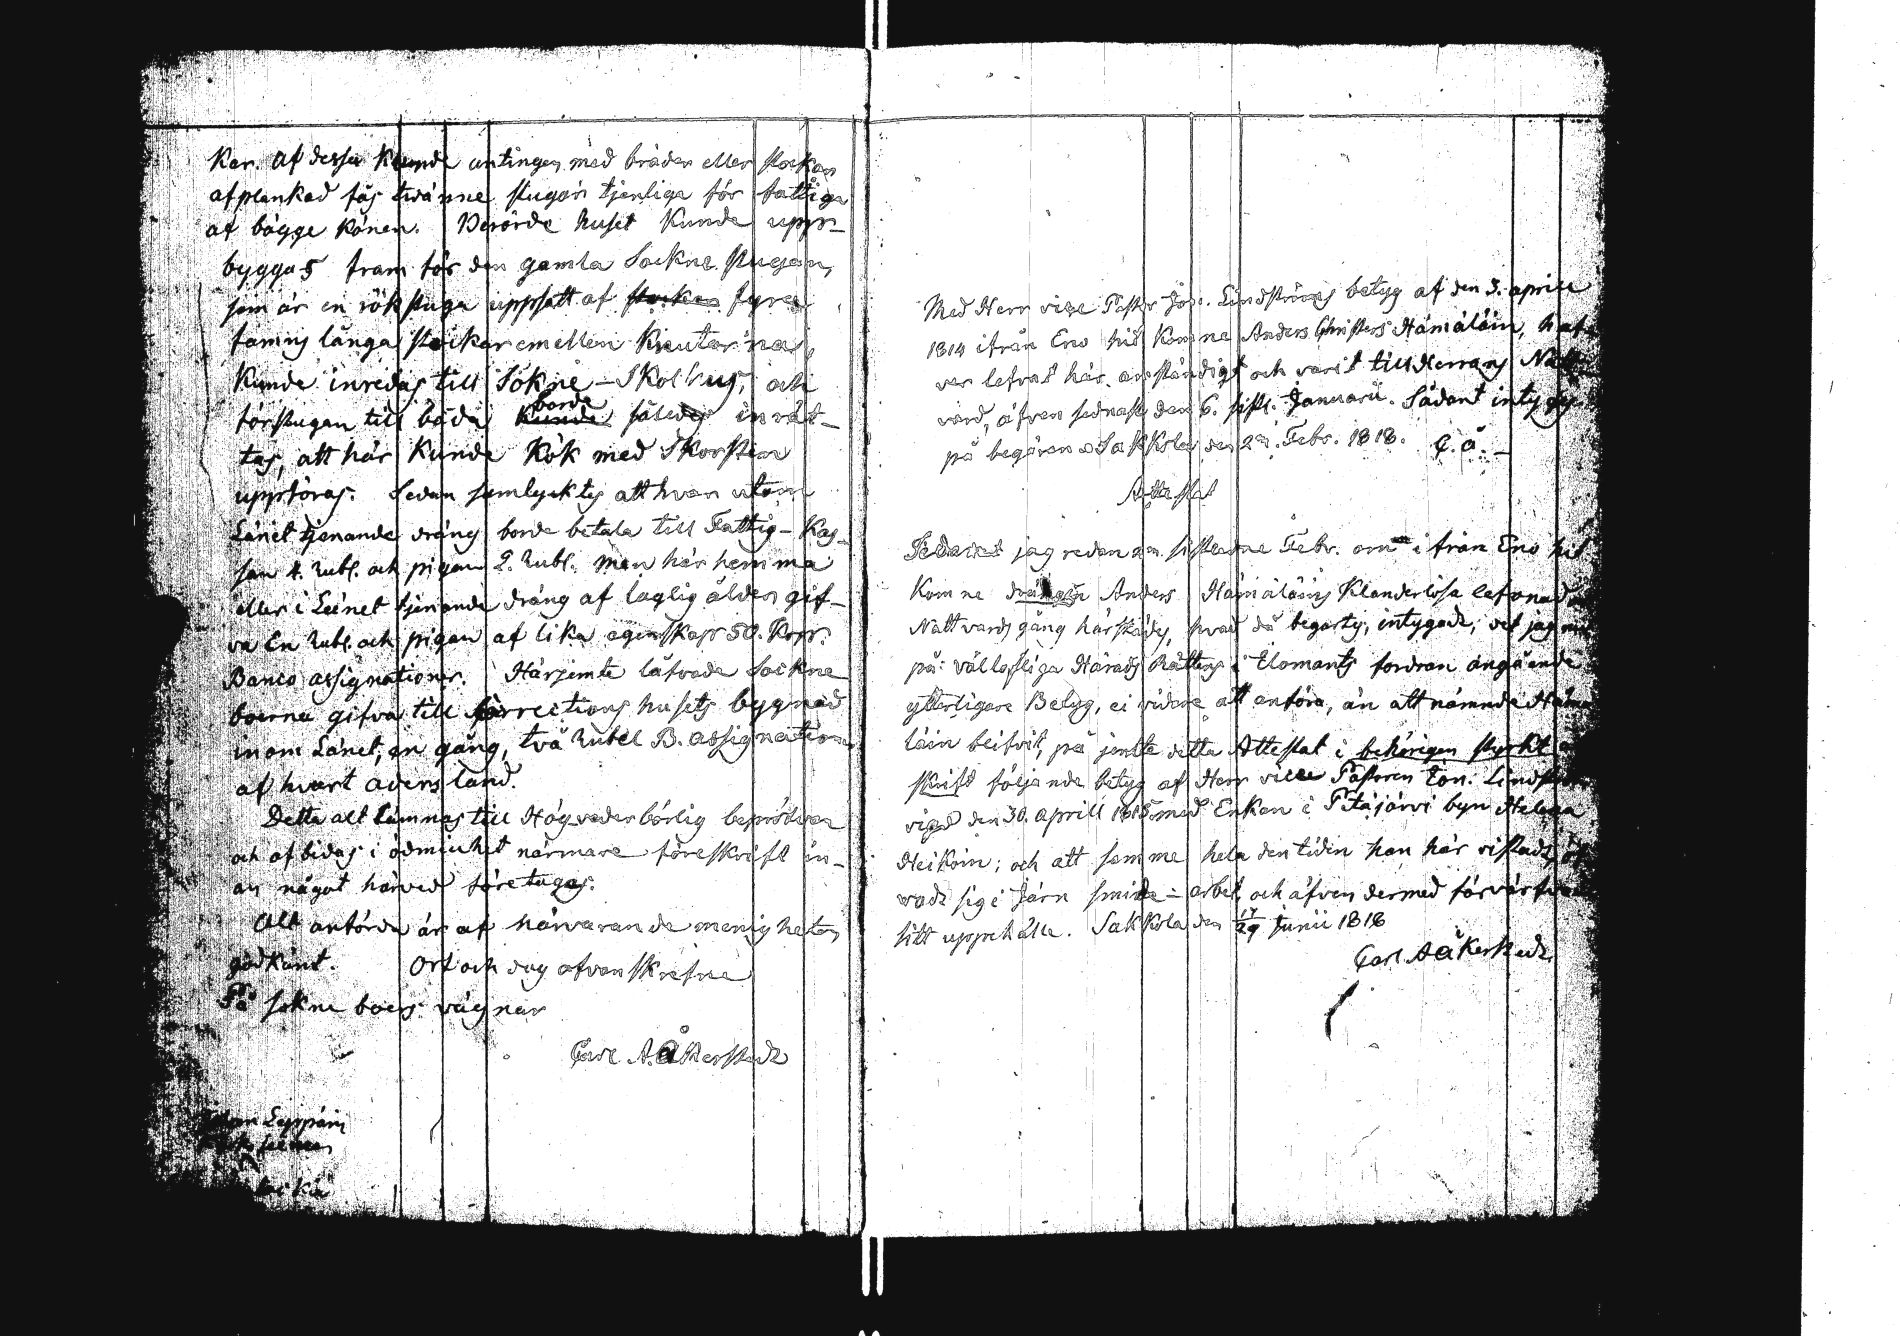 Kar. Af dessa kunde antingen med bräder eller stockar
afplankad fås tvänne stugor tjenliga för fattiga
af bägge könen. Berörde huset kunde upp-
byggas fram för den gamla Sockne stugan,
som är en rökstuga uppsatt af fyra
famns långa stockar emellan knutarna,
kunde inredas till Sokne-Skolhus, och
förstugan till båda borde således inrät-
tas, att här kunde Kök med Skorsten
uppföras. Sedan samtycktes att hvar utom
Länet tjenande dräng borde betala till Fattig-Kas-
san 4. Rubl. och pigan 2. Rubl. men här hemma
eller i Länet tjenande dräng af laglig ålder gif-
va En Rubl. och pigan af lika egenskap 50. Kop.
Banco assignationer. Härjemte låfvade Sockne
boerne gifva till Corrections husets bygnad
inom Länet, en gång, två Rubel B. assignationer
af hvart adersland.
Detta alt lämnas till Högvederbörlig bepröfvan
och afbidas i ödmiukhet närmare föreskrift in-
an något härved företages.
Alt anförda är af närvarande menigheten
godkänt. Ort och dag ofvanskrefne
På sokne boers vägnar
Carl A. Åkerstedt
Leppänj
Med Herr vice Pastor Joh. Lindströms betyg af den 3. aprill
1814 ifrån Eno hit komne Anders Christers Hämäläin, haf
ver lefvat här anständigt och varit till Herrans Natt
vard, äfven sednast den 6. sistl. Januarii. Sådant intygas
på begäran Sakkola den 2. Febr. 1818. C. Å.
Attestat
jag redan sistledne Febr. om ifrån Eno hit
komne drängen Anders Hämäläins klanderlösa lefvnad
Nattvards gång härstädes, hvad då begärtes, intygade, vet jag nu
på vällofliga Härads Rättens i Ilomants fordran angående
ytterligare Betyg, ei vidare att anföra, än att nämnde Häm
läin blifvit, på jemte detta Attestat i behörigen styrkt
skrift följande betyg af Herr vice Pastoren Lind
vigd den 30. aprill 1815 med Enkan i Pitäjärvi byn Helena
Heikoin; och att samme hela den tiden han här vistads öf
vade sig i Järn smide-arbet, och äfven dermed förvärfva
sitt uppehälle. Sakkola den 17/29 Junii 1818
Carl A Åkerstedt